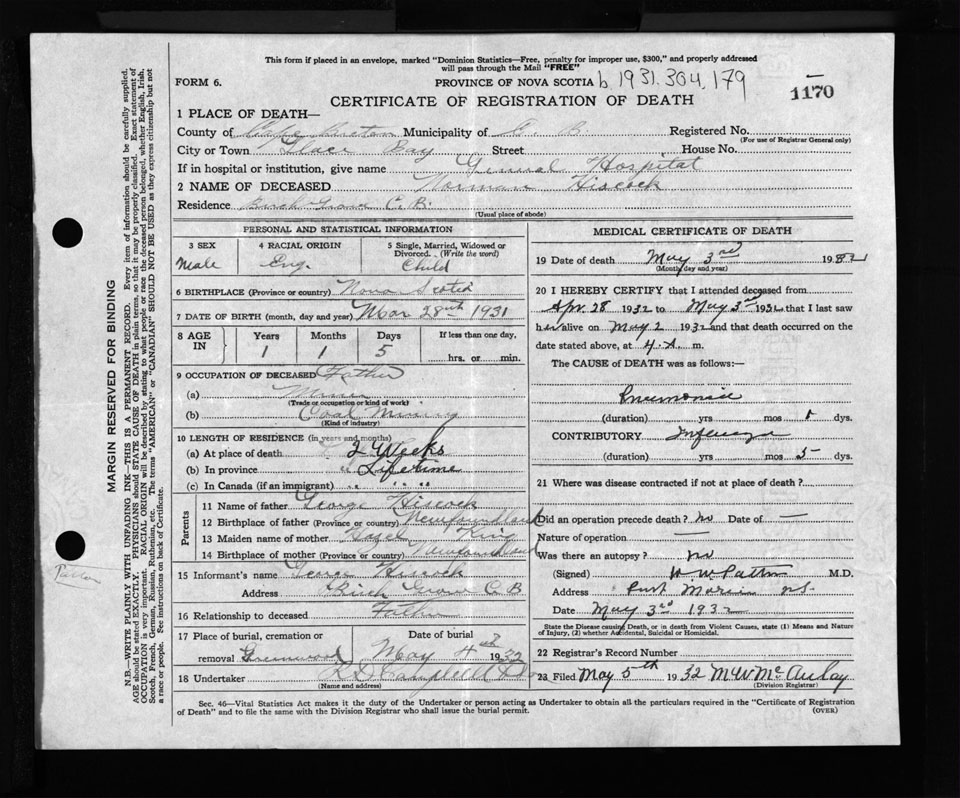 This form if placed in an envelope, marked "Dominion Statistics—Free, penalty for improper use, $300," and properly addressed
will pass through the Mail "FREE"
FORM 6. PROVINCE OF NOVA SCOTIA b 1931.304,179
1170
CERTIFICATE OF REGISTRATION OF DEATH
1 PLACE OF DEATH—
County of Cape Breton Municipality of C. B. Registered No.
(For use of Registrar General only)
City or Town Glace Bay Street House No.
If in hospital or institution, give name General Hospital
2 NAME OF DECEASED Norman Hiscock
Residence Birch Grove C.B.
(Usual place of abode)
PERSONAL AND STATISTICAL INFORMATION
3 SEX 4 RACIAL ORIGIN 5 Single, Married, Widowed or
Divorced. (Write the word)
Male Eng. Child
6 BIRTHPLACE (Province or country) Nova Scotia
7 DATE OF BIRTH (month, day and year) Mar 28th 1931
8 AGE IN Years Months Days If less than one day,
1 1 5 hrs. or min.
9 OCCUPATION OF DECEASED Father
(a) Miner
(Trade or occupation or kind of work)
(b) Coal Mining
(Kind of industry)
10 LENGTH OF RESIDENCE (in years and months)
(a) At place of death 2 Weeks
(b) In province " Lifetime
(c) In Canada (if an immigrant) " " "
Parents
11 Name of father George Hiscock
12 Birthplace of father (Province or country) Newfoundland
13 Maiden name of mother Hazel King
14 Birthplace of mother (Province or country) Newfoundland
15 Informant's name George Hiscock
Address Birch Grove C B
16 Relationship to deceased Father
17 Place of burial, cremation or Date of burial
removal Greenwood May 4th 1932
18 Undertaker
(Name and address)
MEDICAL CERTIFICATE OF DEATH
19 Date of death May 3rd 1932
(Month, day and year)
20 I HEREBY CERTIFY that I attended deceased from
Apr. 28 1932 to May 3rd 1932 that I last saw
him alive on May 2 1932 and that death occurred on the
date stated above, at 4.A. m.
The CAUSE of DEATH was as follows:—
Pneumonia
(duration) yrs mos dys.
CONTRIBUTORY Influenza
(duration) yrs mos 5 dys.
21 Where was disease contracted if not at place of death?
Did an operation precede death? no Date of —
Nature of operation —
Was there an autopsy? no
(Signed) W W Patton M.D.
Address Port Morien NS.
Date May 3rd 1932
State the Disease causing Death, or in death from Violent Causes, state (1) Means and Nature
of Injury, (2) whether Accidental, Suicidal or Homicidal.
22 Registrar's Record Number
23 Filed May 5th 1932 M W McAulay
(Division Registrar)
Sec. 46—Vital Statistics Act makes it the duty of the Undertaker or person acting as Undertaker to obtain all the particulars required in the "Certificate of Registration
of Death" and to file the same with the Division Registrar who shall issue the burial permit. (OVER)
MARGIN RESERVED FOR BINDING
N.B.—WRITE PLAINLY WITH UNFADING INK—THIS IS A PERMANENT RECORD. Every item of information should be carefully supplied.
AGE should be stated EXACTLY. PHYSICIANS should STATE CAUSE OF DEATH in plain terms, so that it may be properly classified. Exact statement of
OCCUPATION is very important. RACIAL ORIGIN will be described by stating to what people or race the deceased person belonged, whether English, Irish,
Scotch, French, German, Russian, Ruthenian, etc. The terms "AMERICAN" or "CANADIAN" SHOULD NOT BE USED as they express citizenship but not
a race or people. See instructions on back of Certificate.
Patton